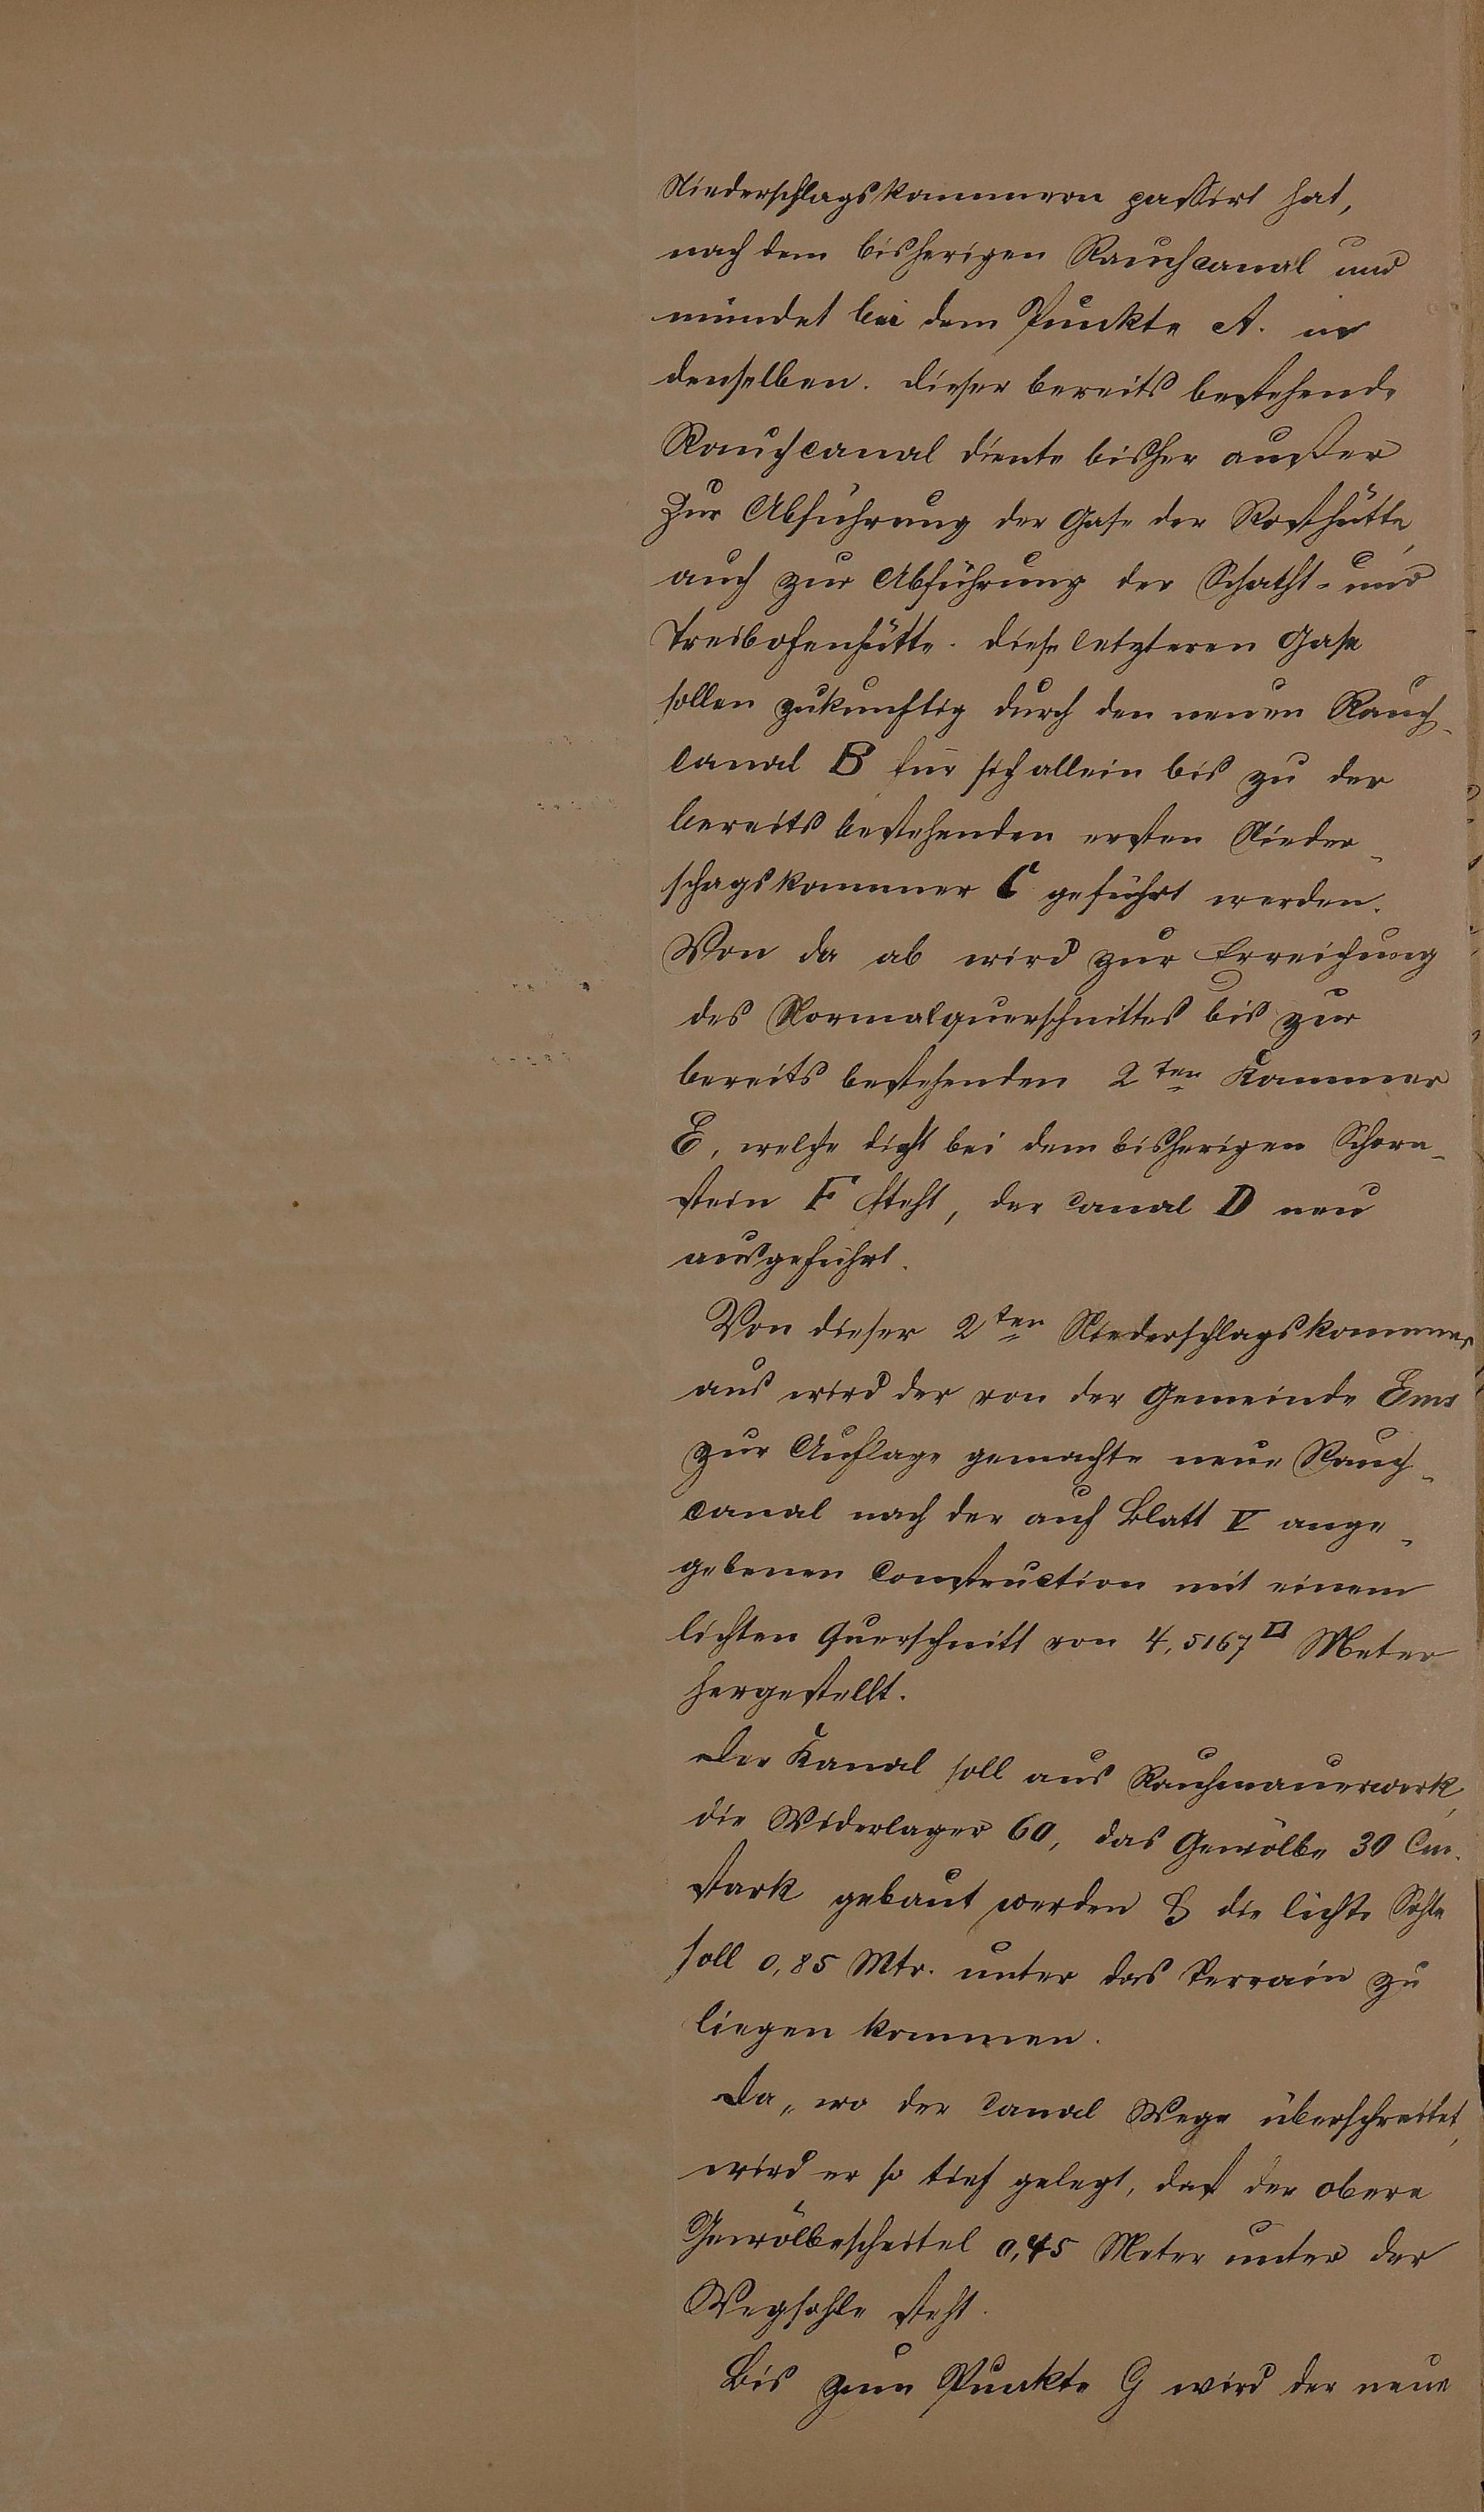 Niederschlagskammern passirt hat,
nach dem bisherigen Rauchcanal und
mündet bei dem Punkte A. in
denselben. Dieser bereits bestehende
Rauchcanal diente bisher außer
zur Abführung der Gase der Rosthütte,
auch zur Abführung der Schacht- und
Treibofenhütte. Diese letzteren Gase
sollen zukünftig durch den neuen Rauch-
canal B für sich allein bis zu der
bereits bestehenden ersten Nieder-
schagskammer C geführt werden.
Von da ab wird zur Erreichung
des Normalquerschnittes bis zur
bereits bestehenden 2ten Kammer
E, welche dicht bei dem bisherigen Schorn-
stein F steht, der Canal D neu
ausgeführt.
Von dieser 2ten Niederschlagskammer
aus wird der von der Gemeinde Ems
zur Auflage gemachte neue Rauch-
canal nach der auf Blatt V ange-
gebenen Construction mit einem
lichten Querschnitt von 4,5167 □ Meter
hergestellt.
Der Kanal soll aus Rauhmauerwerk,
die Widerlager 60, das Gewölbe 30 Cm.
stark gebaut werden & die lichte Sohle
soll 0,85 Mtr. unter das Terrain zu
liegen kommen.
Da, wo der Canal Wege überschreitet,
wird er so tief gelegt, daß der obere
Gewölbescheitel 0,45 Meter unter der
Wegsohle steht.
Bis zum Punkte G wird der neue